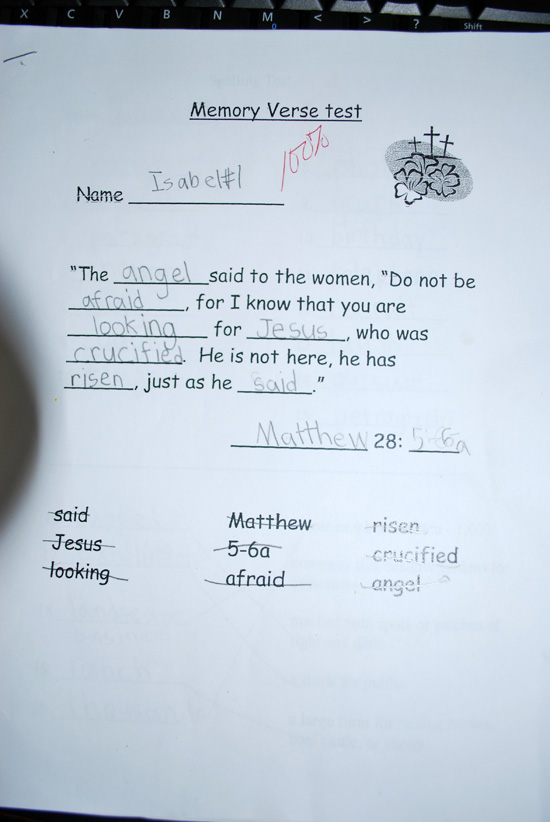 X C V B N M < > ? Shift
Memory Verse test
100%
Name Isabel#1
"The angel said to the women, "Do not be
afraid, for I know that you are
looking for Jesus, who was
crucified. He is not here, he has
risen, just as he said."
Matthew 28: 5-6a
said Matthew risen
Jesus 5-6a crucified
looking afraid angel